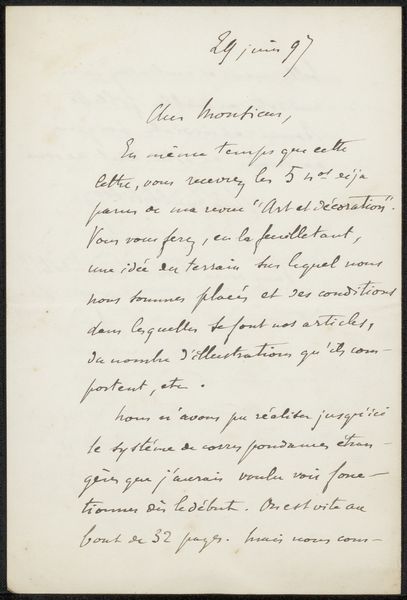 29 juin 97
Cher Monsieur,
En même temps que cette
lettre, vous recevrez les 5 nos déja
parus de ma revue "Art et décoration".
Vous vous ferez, en la feuilletant,
une idée du terrain sur lequel nous
nous sommes placés et des conditions
dans lesquelles se font nos articles,
du nombre d'illustrations qu'ils com-
portent, etc.
Nous n'avons pu réaliser jusqu'ici
le système de correspondances étran-
gères que j'aurais voulu voir fonc-
tionner dès le début. On est vite au
bout de 32 pages. Mais nous comp-